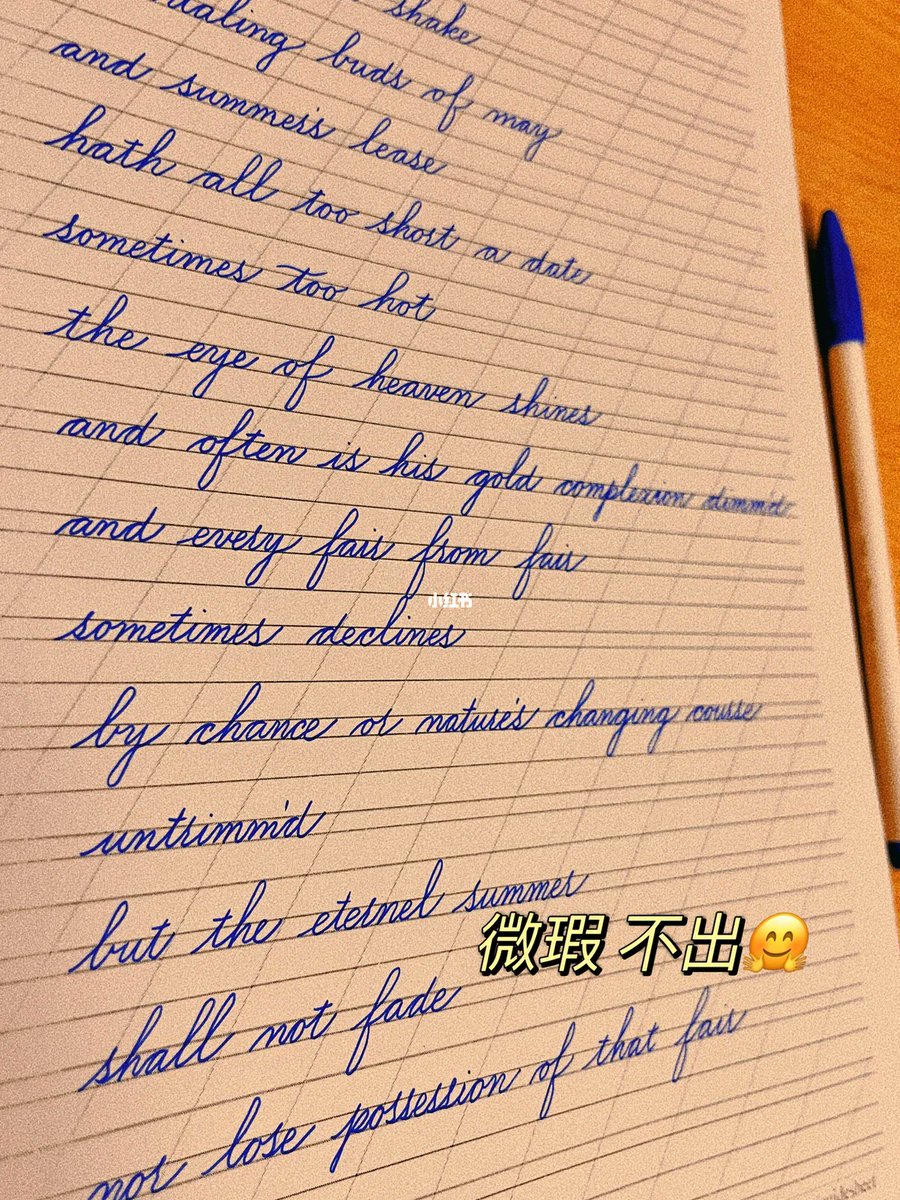 shake
buds of may
and summer's lease
hath all too short a date
sometimes too hot
the eye of heaven shines
and often is his gold complexion dimm'd
and every fair from fair
sometimes declines
小红书
by chance or nature's changing course
untrimm'd
but the eternel summer
微瑕 不出🤗
shall not fade
nor lose possession of that fair